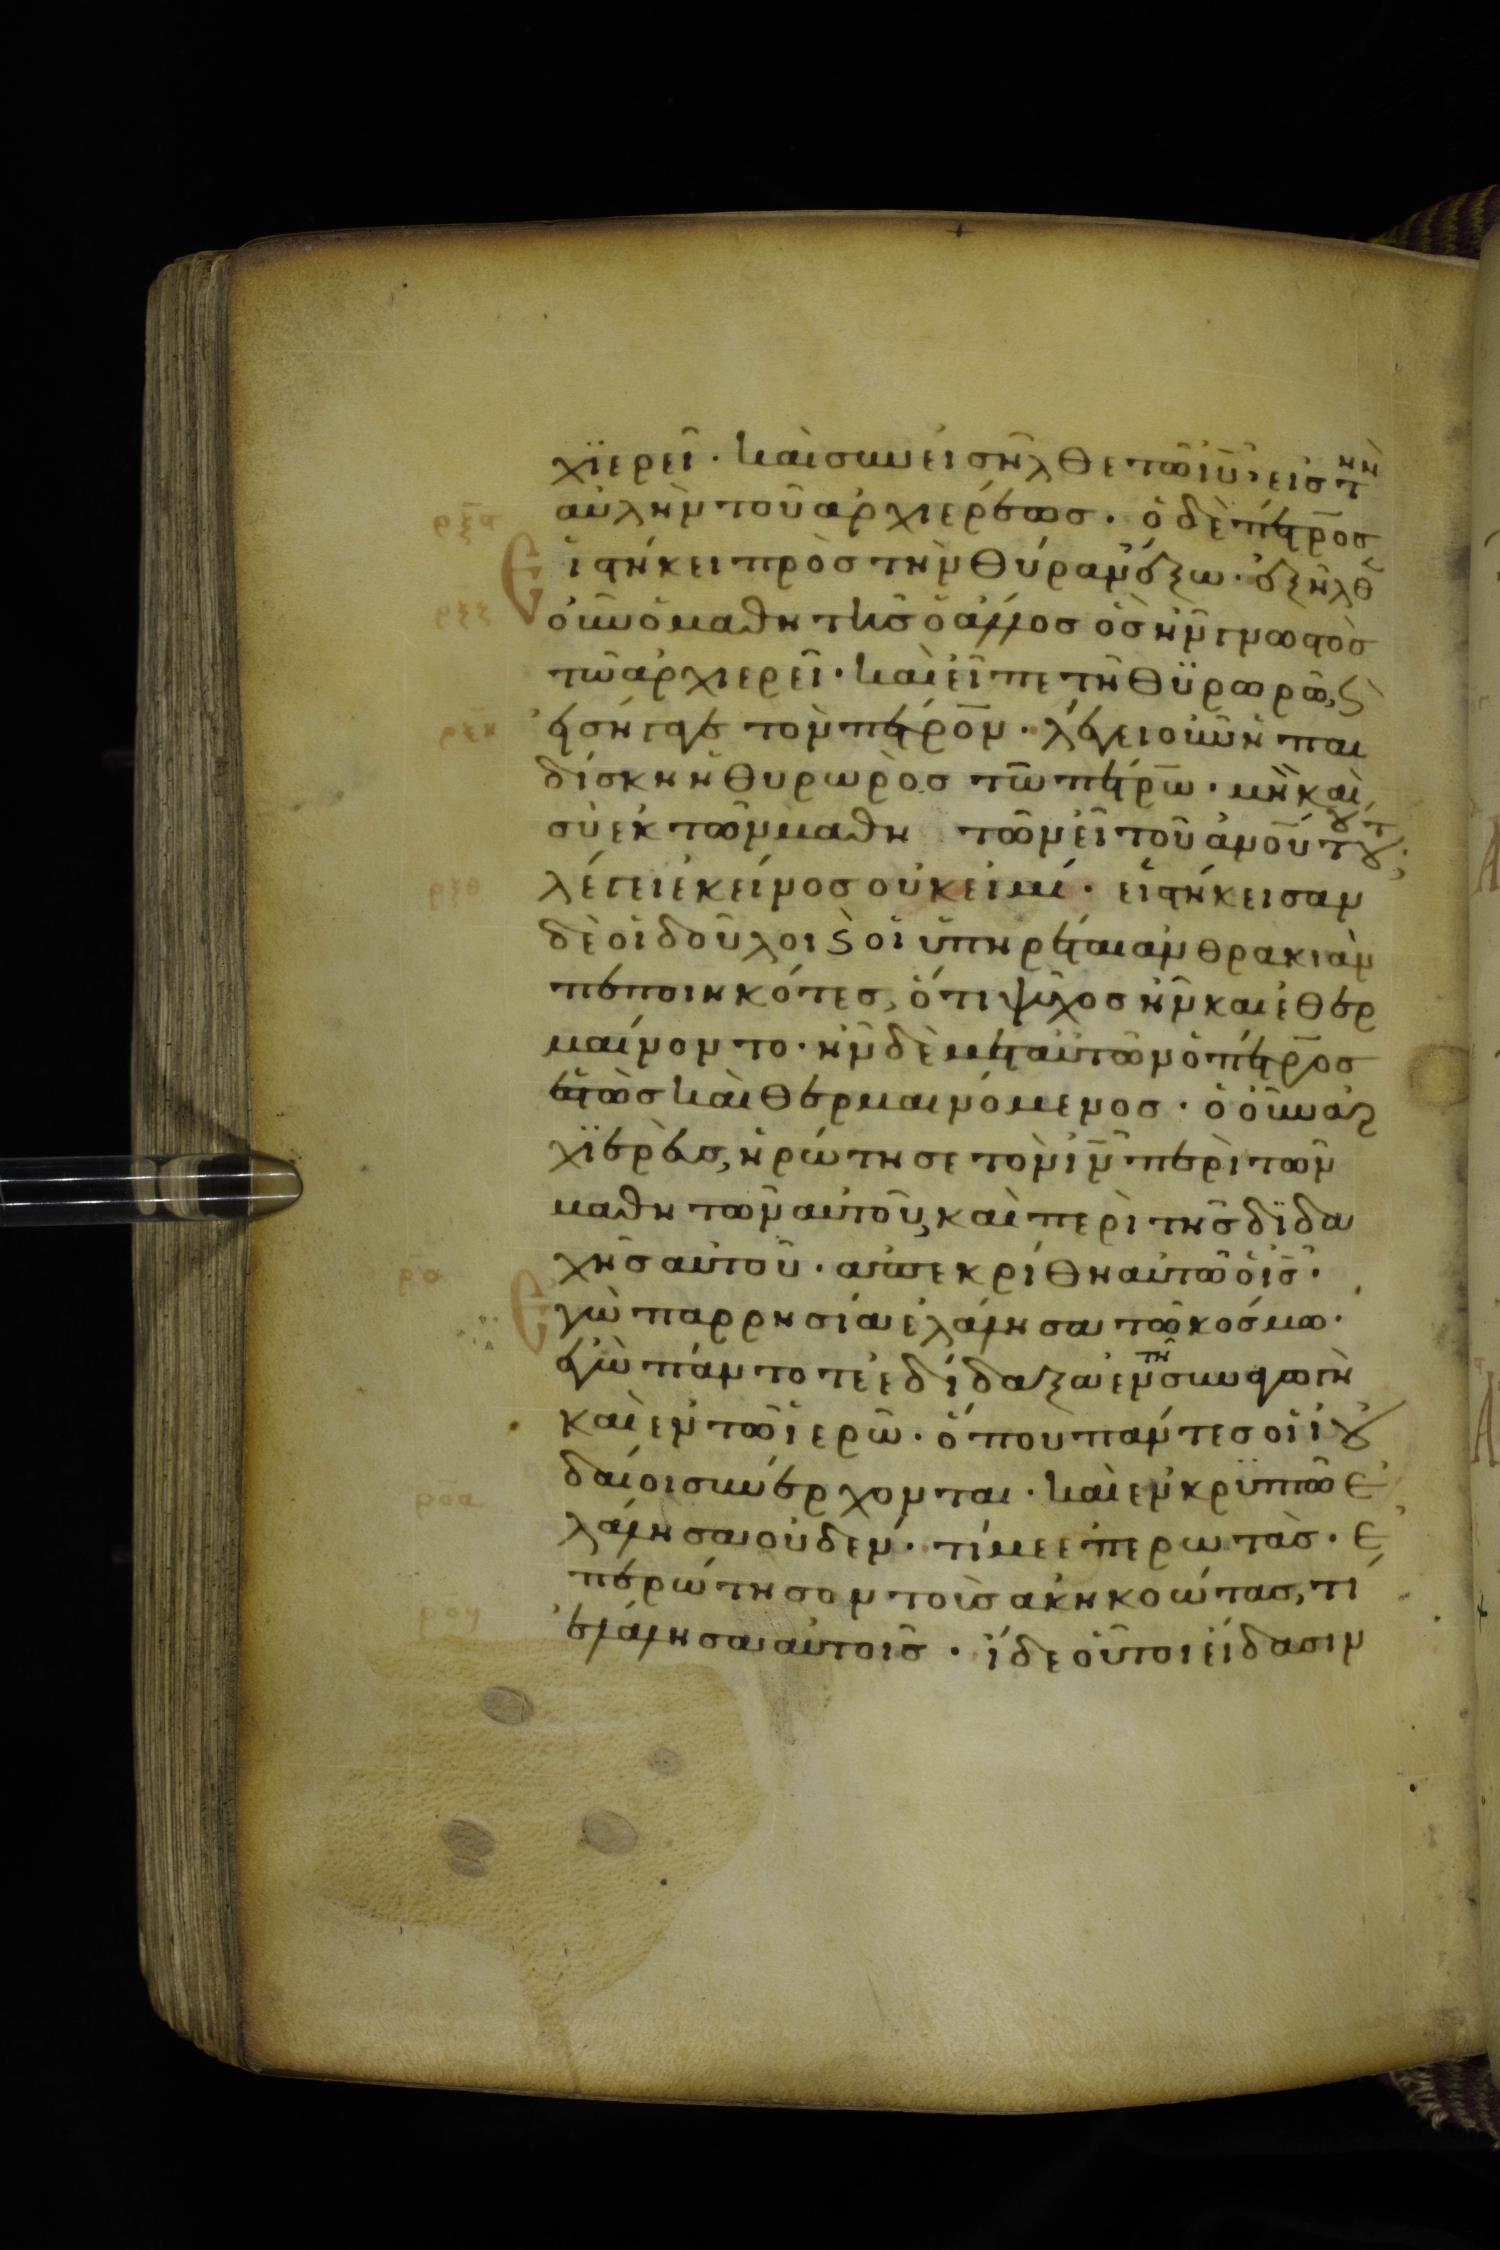 χϊερεῖ · καὶ συνεισῆλθε τῶ ἰῦ, εἰς τὴν
αὐλὴν τοῦ ἀρχιερέως · ὁ δὲ πέτρος
ρξζ
εἱστήκει πρὸς τὴν θύραν ἔξω · ἐξῆλθεν
οὖν ὁ μαθητὴς ὁ ἄλλος ὃς ἦν γνωστὸς
τῶ ἀρχιερεῖ · καὶ εἶπε τῆ θϋρωρῶ, ϗ
ρξη
εἰσήγαγε τὸν πέτρον · λέγει οὖν ἡ παι
δίσκη ἡ θυρωρὸς τῶ πέτρω · μὴ καὶ
σὺ ἐκ τῶν μαθητῶν εἶ τοῦ ἀνοῦ τούτου;
ρξθ
λέγει ἐκεῖνος οὐκ εἰμί · εἱστήκεισαν
δὲ οἱ δοῦλοι ϗ οἱ ὑπηρέται ἀνθρακιὰν
πεποιηκότες, ὅτι ψῦχος ἦν καὶ ἐθερ
μαίνοντο · ἦν δὲ μετ αὐτῶν ὁ πέτρος
ἑστὼς καὶ θερμαινόμενος · ὁ οὖν ἀρ
χϊερεὺς, ἠρώτησε τὸν ἰν περὶ τῶν
μαθητῶν αὐτοῦ, καὶ περὶ τῆς δϊδα
ρο
χῆς αὐτοῦ · ἀπεκρίθη αὐτῶ ὁ ἰς ·
Ἐγὼ παρρησία ἐλάλησα τῶ κόσμω ·
ἐγὼ πάντοτε ἐδίδαξα ἐν τῆ συναγωγῆ
καὶ ἐν τῶ ἱερῶ · ὅπου πάντες οἱ ἰου
δαῖοι συνέρχονται · καὶ ἐν κρϋπτῶ ἐ
ροα
λάλησα οὐδέν · τί με ἐπερωτᾶς · ἐ
περώτησον τοὺς ἀκηκοώτας, τί
ἐλάλησα αὐτοῖς · ἴδε οὗτοι εἴδασιν